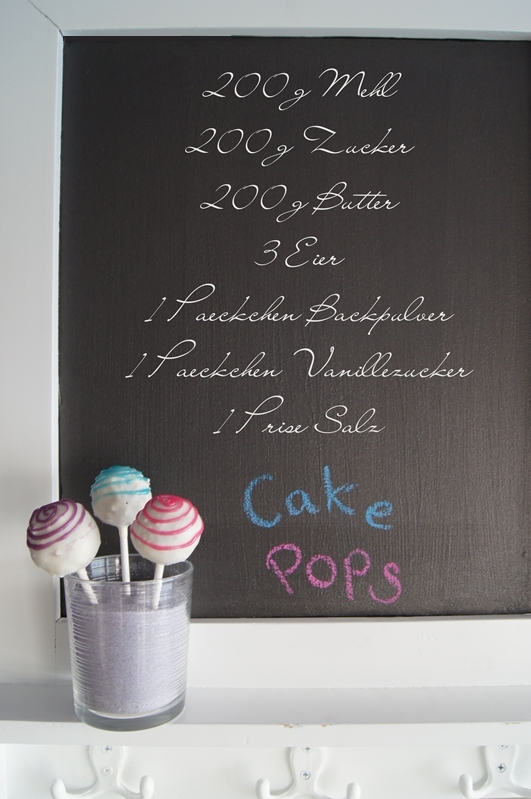 200g Mehl
200g Zucker
200g Butter
3 Eier
1 Paeckchen Backpulver
1 Paeckchen Vanillezucker
1 Prise Salz
Cake
POPS